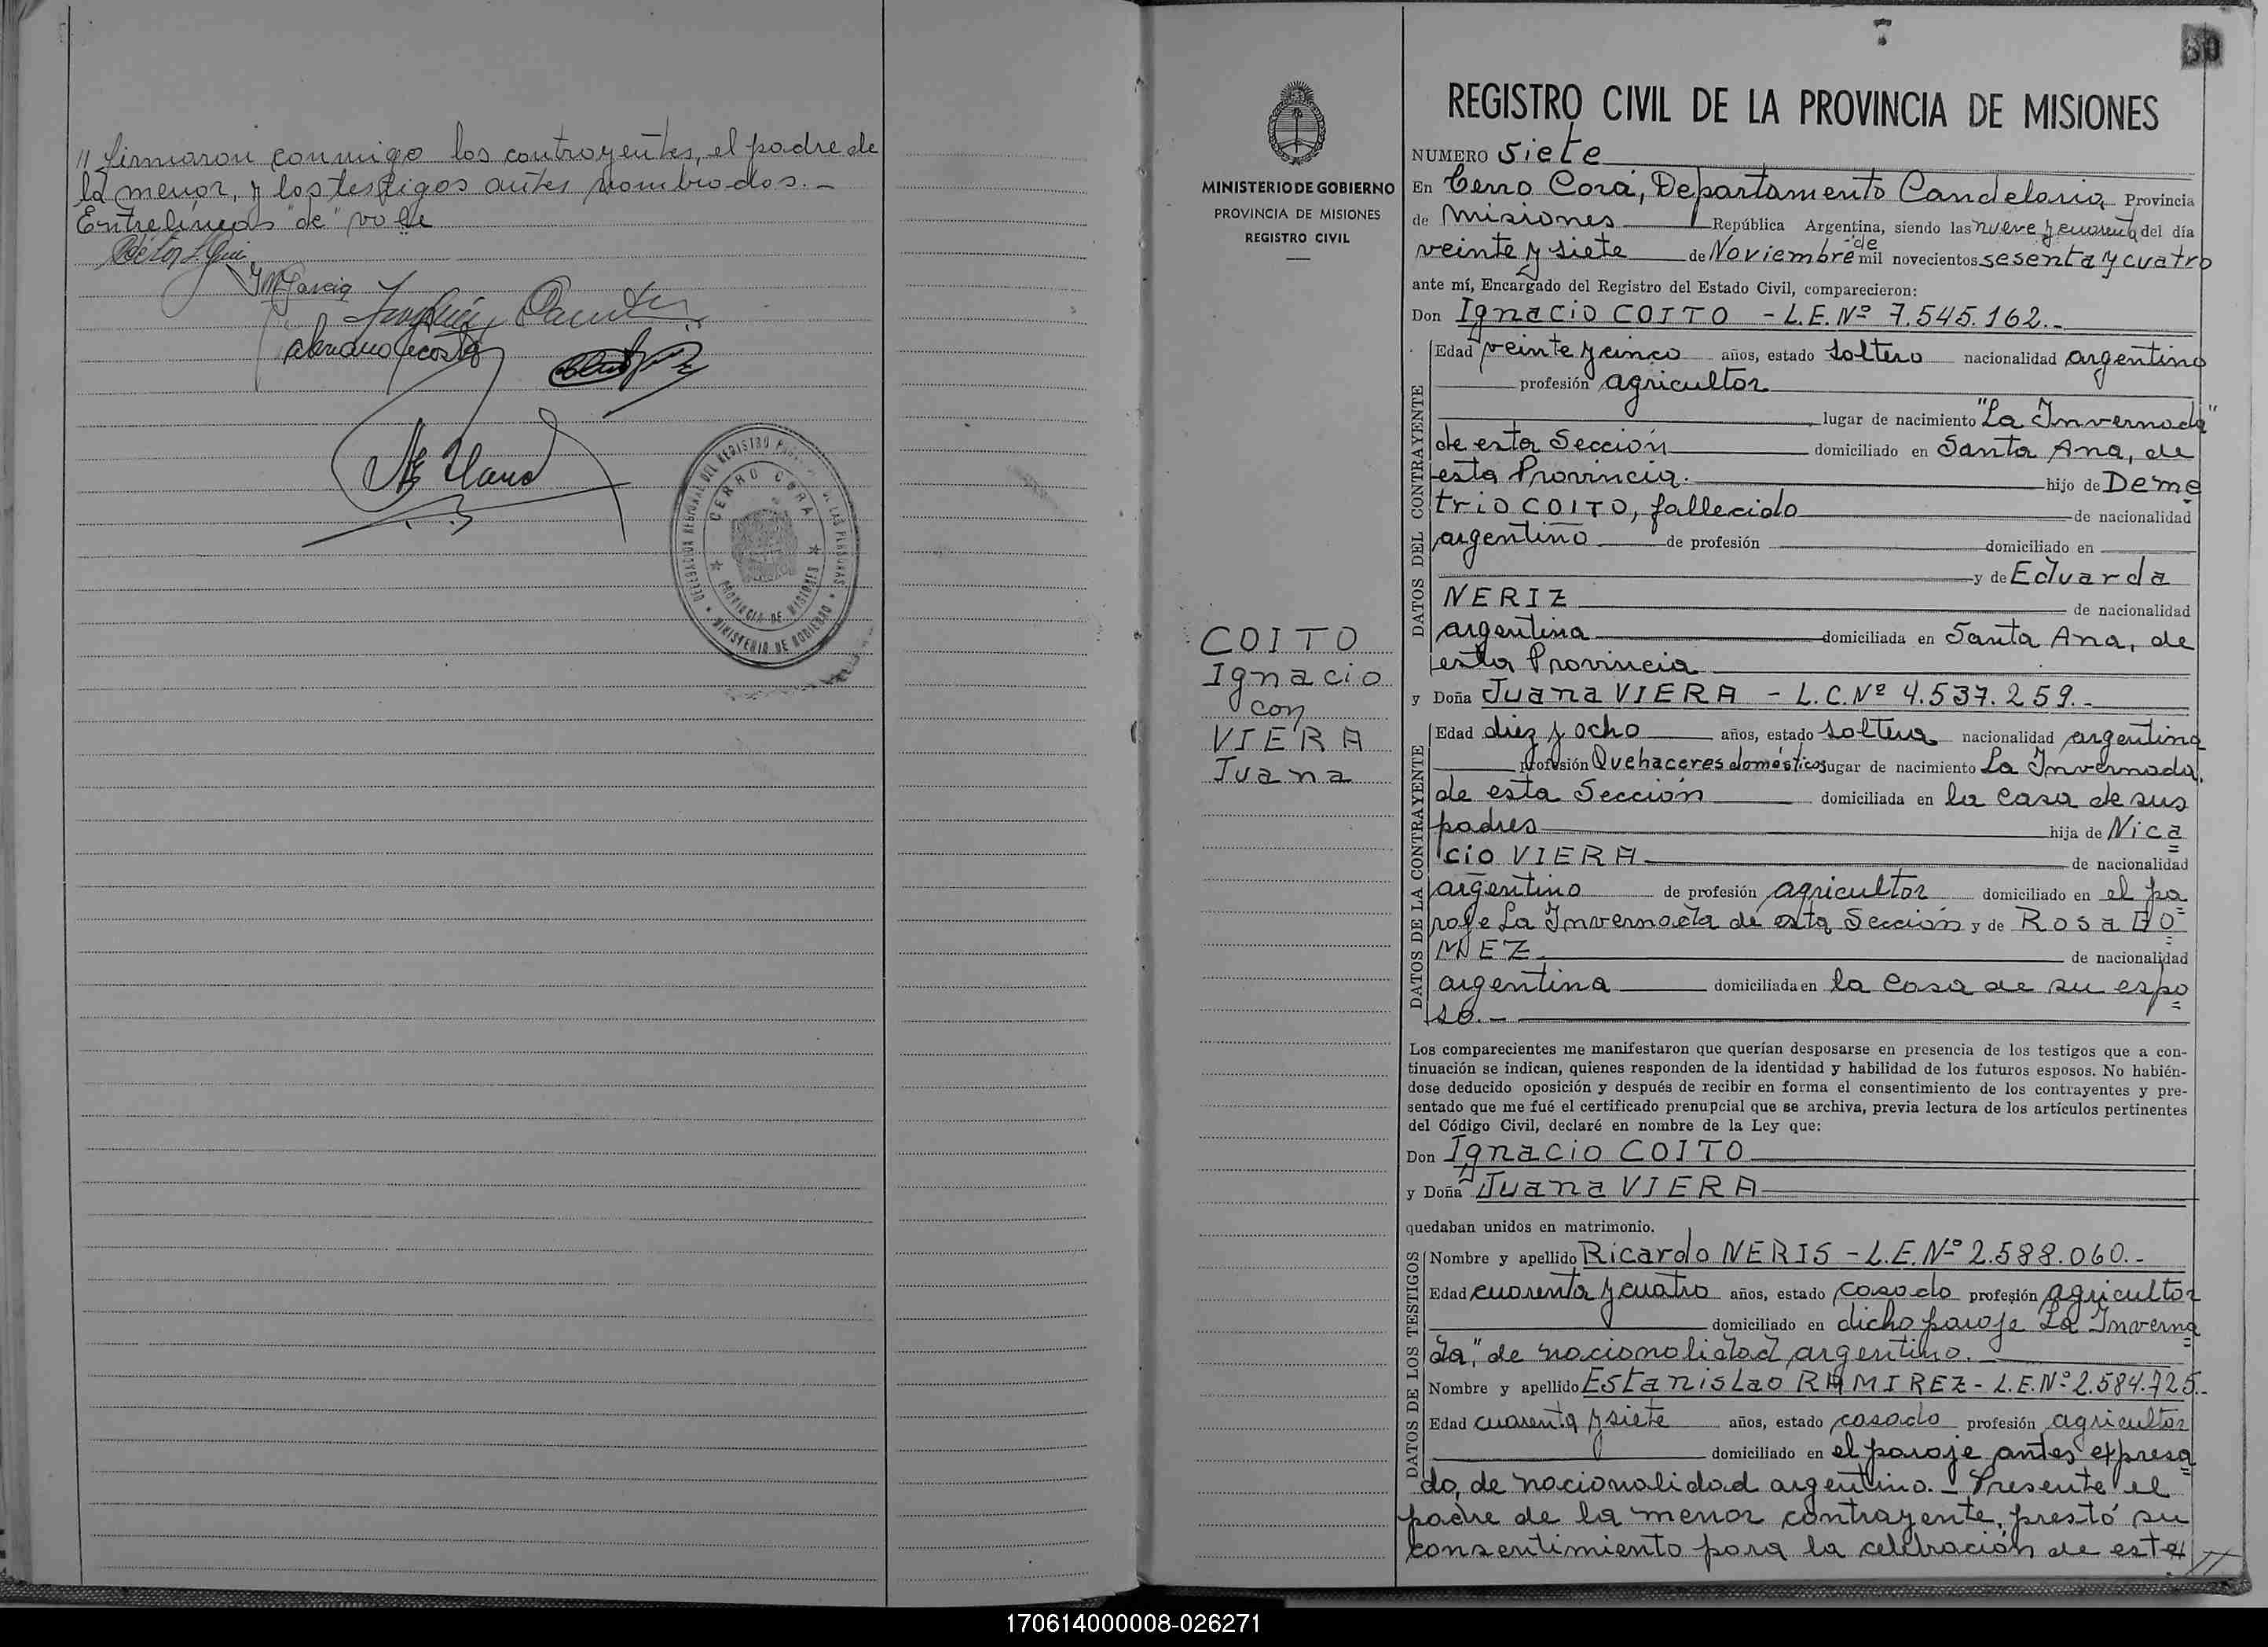 // firmaron conmigo los contrayentes, el padre de
la menor, y los testigos antes nombrados.-
Entrelíneas "de" vale
DELEGACION REGIONAL DEL REGISTRO
DE LAS PERSONAS
CERRO CORA
PROVINCIA DE MISIONES
MINISTERIO DE GOBIERNO
MINISTERIO DE GOBIERNO
PROVINCIA DE MISIONES
REGISTRO CIVIL
COITO
Ignacio
con
VIERA
Juana
REGISTRO CIVIL DE LA PROVINCIA DE MISIONES
NUMERO Siete
En Cerro Corá, Departamento Candelaria Provincia
de Misiones República Argentina, siendo las nueve y cuarenta del día
veinte y siete de Noviembre de mil novecientos sesenta y cuatro
ante mí, Encargado del Registro del Estado Civil, comparecieron:
Don Ignacio COITO - L.E.Nº 7.545.162.-
DATOS DEL CONTRAYENTE
Edad veinte y cinco años, estado soltero nacionalidad argentino
profesión agricultor
lugar de nacimiento "La Invernada"
de esta Sección domiciliado en Santa Ana, de
esta Provincia. hijo de Deme
trio COITO, fallecido de nacionalidad
argentino de profesión domiciliado en
y de Eduarda
NERIZ de nacionalidad
argentina domiciliada en Santa Ana, de
esta Provincia
y Doña Juana VIERA - L.C.Nº 4.537.259.-
DATOS DE LA CONTRAYENTE
Edad diez y ocho años, estado soltera nacionalidad argentina
profesión Quehaceres domésticos lugar de nacimiento La Invernada,
de esta Sección domiciliada en la casa de sus
padres hija de Nica=
cio VIERA de nacionalidad
argentino de profesión agricultor domiciliado en el pa=
raje La Invernada de esta Sección y de Rosa GO=
MEZ de nacionalidad
argentina domiciliada en la casa de su espo=
so.-
Los comparecientes me manifestaron que querían desposarse en presencia de los testigos que a con-
tinuación se indican, quienes responden de la identidad y habilidad de los futuros esposos. No habién-
dose deducido oposición y después de recibir en forma el consentimiento de los contrayentes y pre-
sentado que me fué el certificado prenupcial que se archiva, previa lectura de los artículos pertinentes
del Código Civil, declaré en nombre de la Ley que:
Don Ignacio COITO
y Doña Juana VIERA
quedaban unidos en matrimonio.
DATOS DE LOS TESTIGOS
Nombre y apellido Ricardo NERIS - L.E.Nº 2.588.060.-
Edad cuarenta y cuatro años, estado casado profesión agricultor
domiciliado en dicho paraje La Inverna=
da", de nacionalidad argentino.
Nombre y apellido Estanislao RAMIREZ - L.E.Nº 2.584.725.-
Edad cuarenta y siete años, estado casado profesión agricultor
domiciliado en el paraje antes expresa=
do, de nacionalidad argentino.- Presente el
padre de la menor contrayente, prestó su
consentimiento para la celebración de este //
170614000008-026271